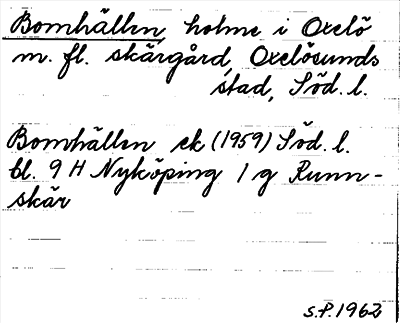 Bomhällen, holme i Oxelö
m. fl. skärgård, Oxelösunds
stad, Söd. l.
Bomhällen ek (1959) Söd. l.
bl. 9 H Nyköping 1 g Runn-
skär
S.P. 1962